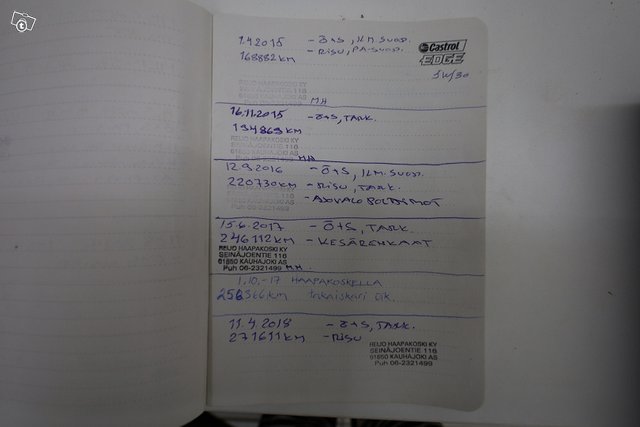 1.4.2015 - Ö+S, ILM.SUOD.
168882KM - RISU, PA-SUOD.
Castrol
EDGE
5W/30
MH
16.11.2015 - Ö+S, TARK.
194869KM
REIJO HAAPAKOSKI KY
SEINÄJOENTIE 116
61850 KAUHAJOKI AS
MH
12.9.2016 - Ö+S, ILM.SUOD.
220730KM - RISU, TARK.
- AJOVALO POLTTIMOT
15.6.2017 - Ö+S, TARK.
246112KM - KESÄRENKAAT
REIJO HAAPAKOSKI KY
SEINÄJOENTIE 116
61850 KAUHAJOKI AS
Puh 06-2321499 MH.
1.10.-17 HAAPAKOSKELLA
258366km takaiskari oik.
11.4.2018 - Ö+S, TARK.
271611KM - RISU
REIJO HAAPAKOSKI KY
SEINÄJOENTIE 116
61850 KAUHAJOKI AS
Puh 06-2321499